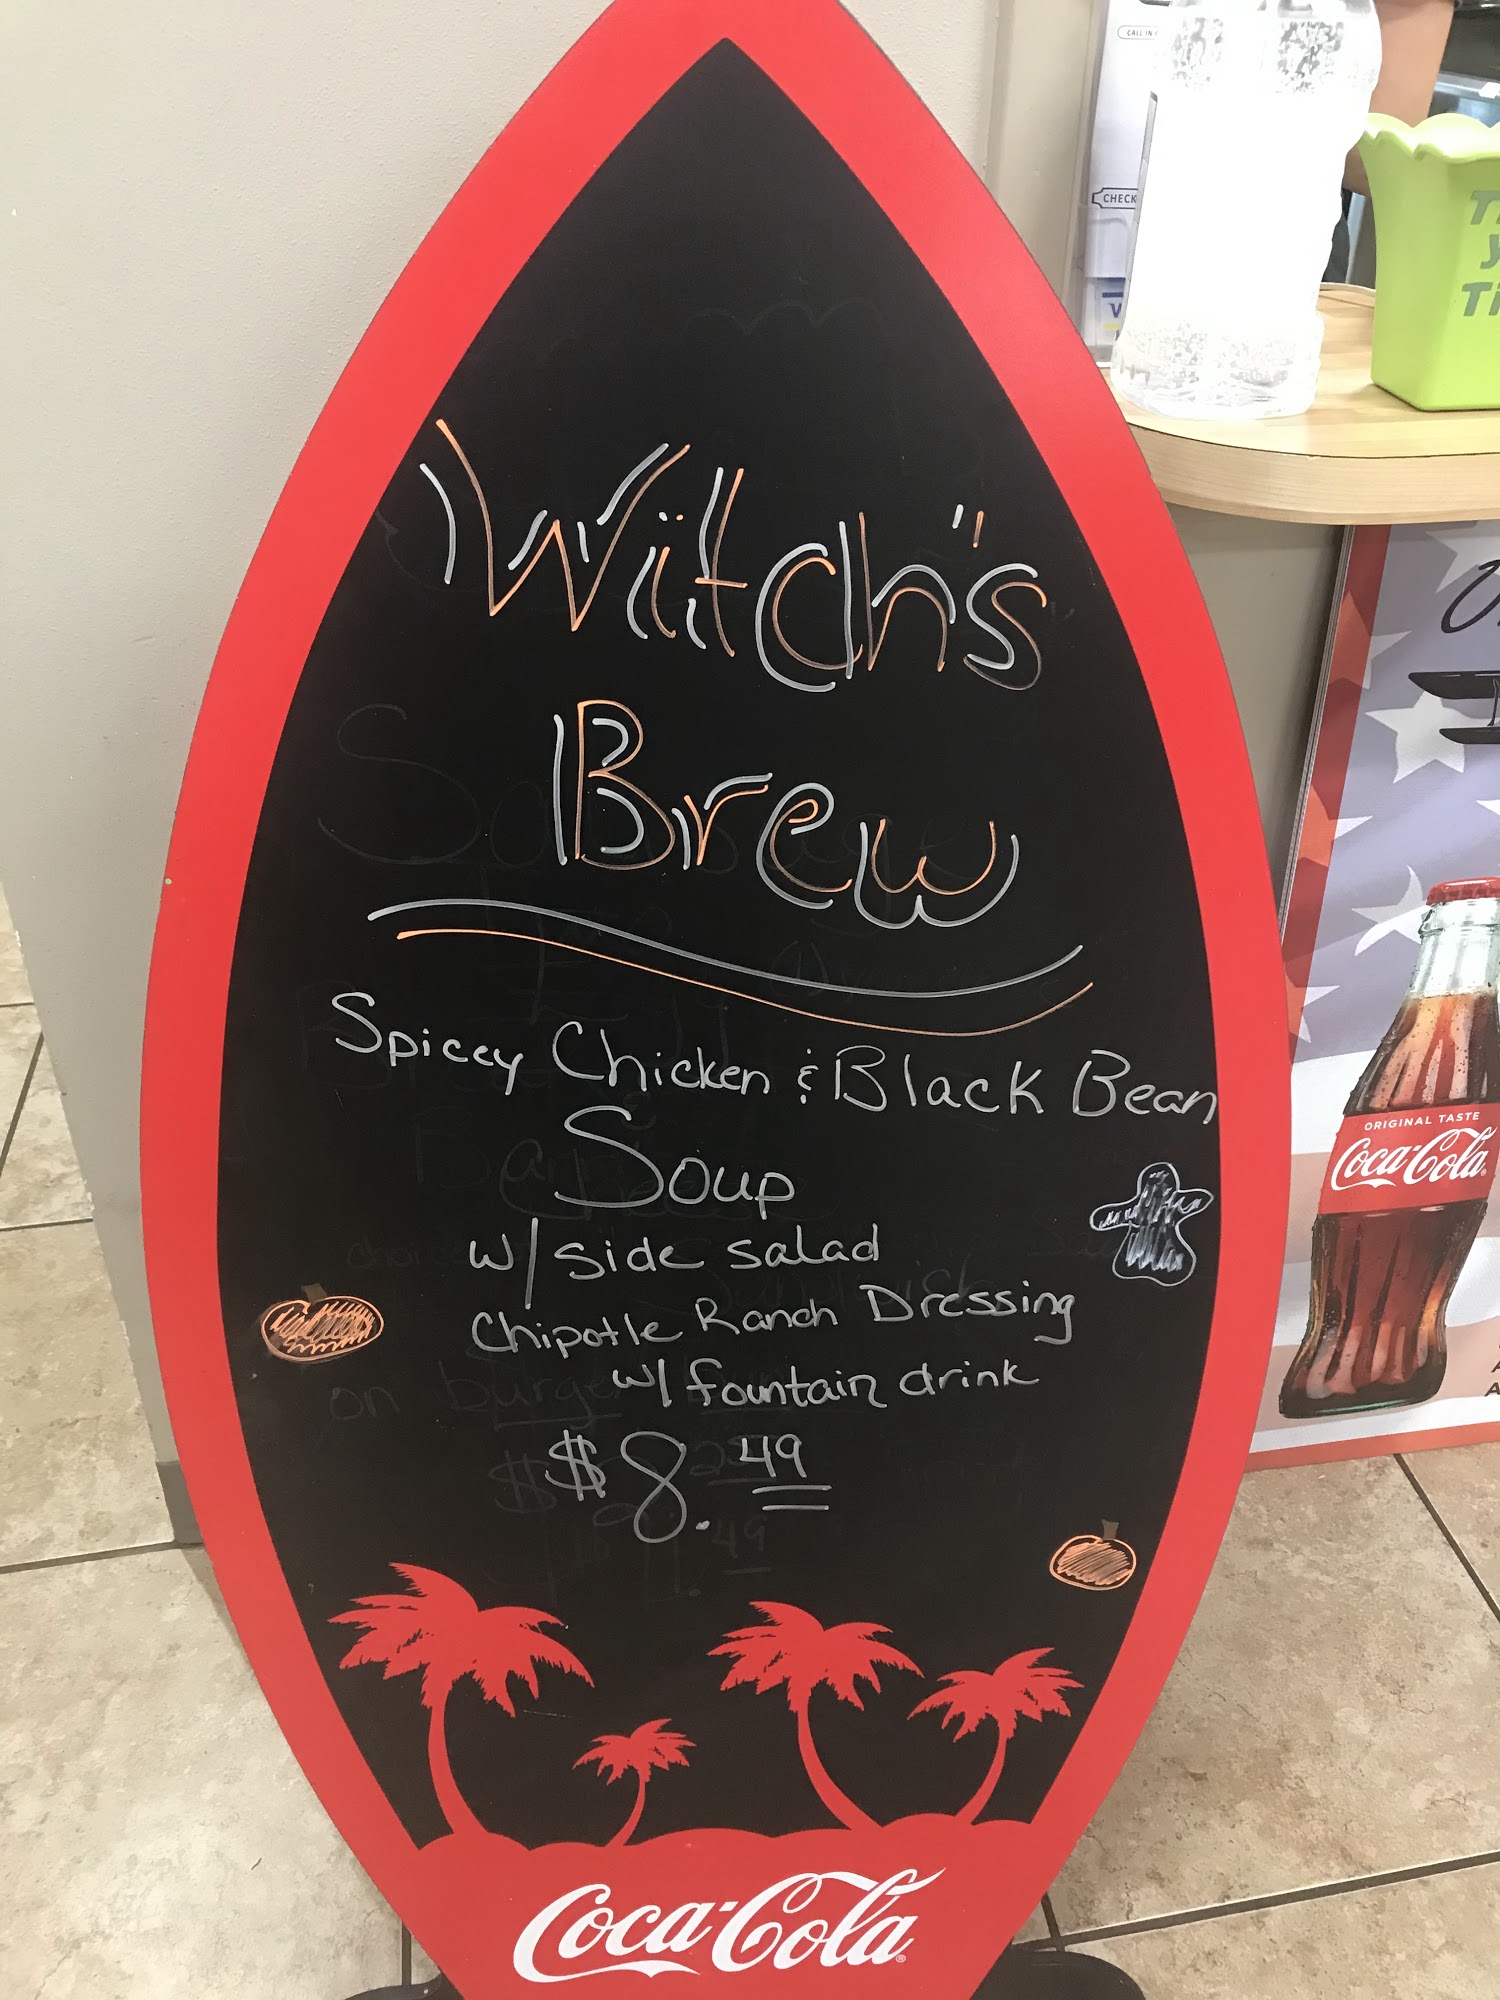 Witch's
Brew
Spiccy Chicken & Black Bean
Soup
w/ side salad
Chipotle Ranch Dressing
w/ fountain drink
$8.49
Coca-Cola
CALL IN
CHECK
ORIGINAL TASTE
Coca-Cola